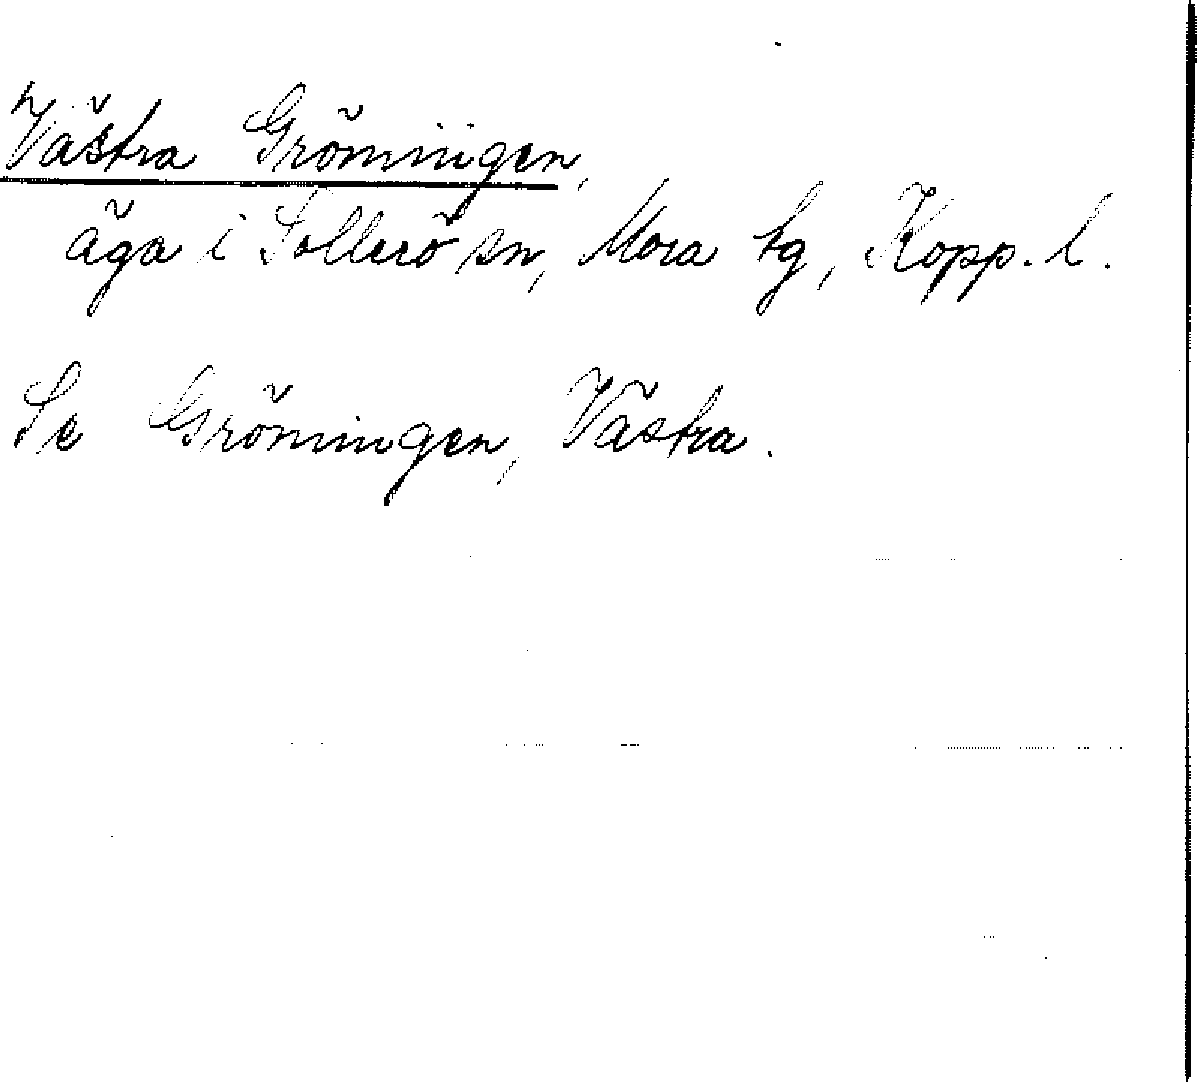 Västra Gröningen,
äga i Sollerö sn, Mora tg, Kopp. l.
Se Gröningen, Västra.